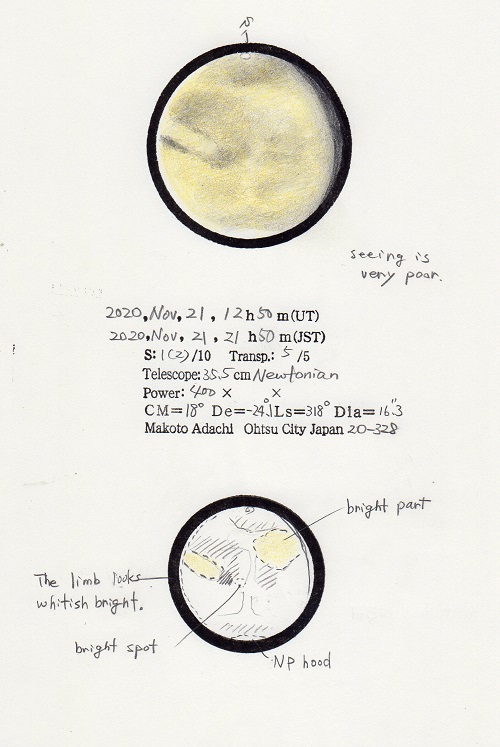 seeing is
very poor.
2020, Nov, 21, 12 h 50 m (UT)
2020, Nov, 21, 21 h 50 m (JST)
S: 1(2) /10 Transp.: 5 /5
Telescope: 35.5 cm Newtonian
Power: 400 × ×
CM=18° De=-24.1° Ls=318° Dia=16.″3
Makoto Adachi Ohtsu City Japan 20-328
bright part
The limb looks
whitish bright.
bright spot
NP hood